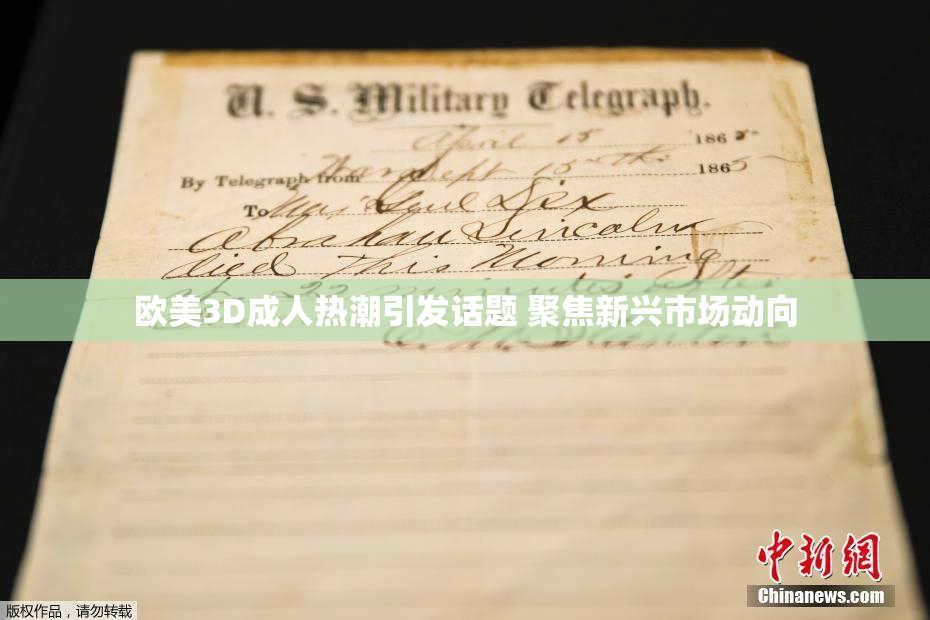 U. S. Military Telegraph.
April 15 1865
By Telegraph from War Dept 15th 1865
To Maj Genl Dix
Abraham Lincoln
died This Morning
at 22 minutes after
欧美3D成人热潮引发话题 聚焦新兴市场动向
E. M. Stanton
中新网
Chinanews.com
版权作品，请勿转载